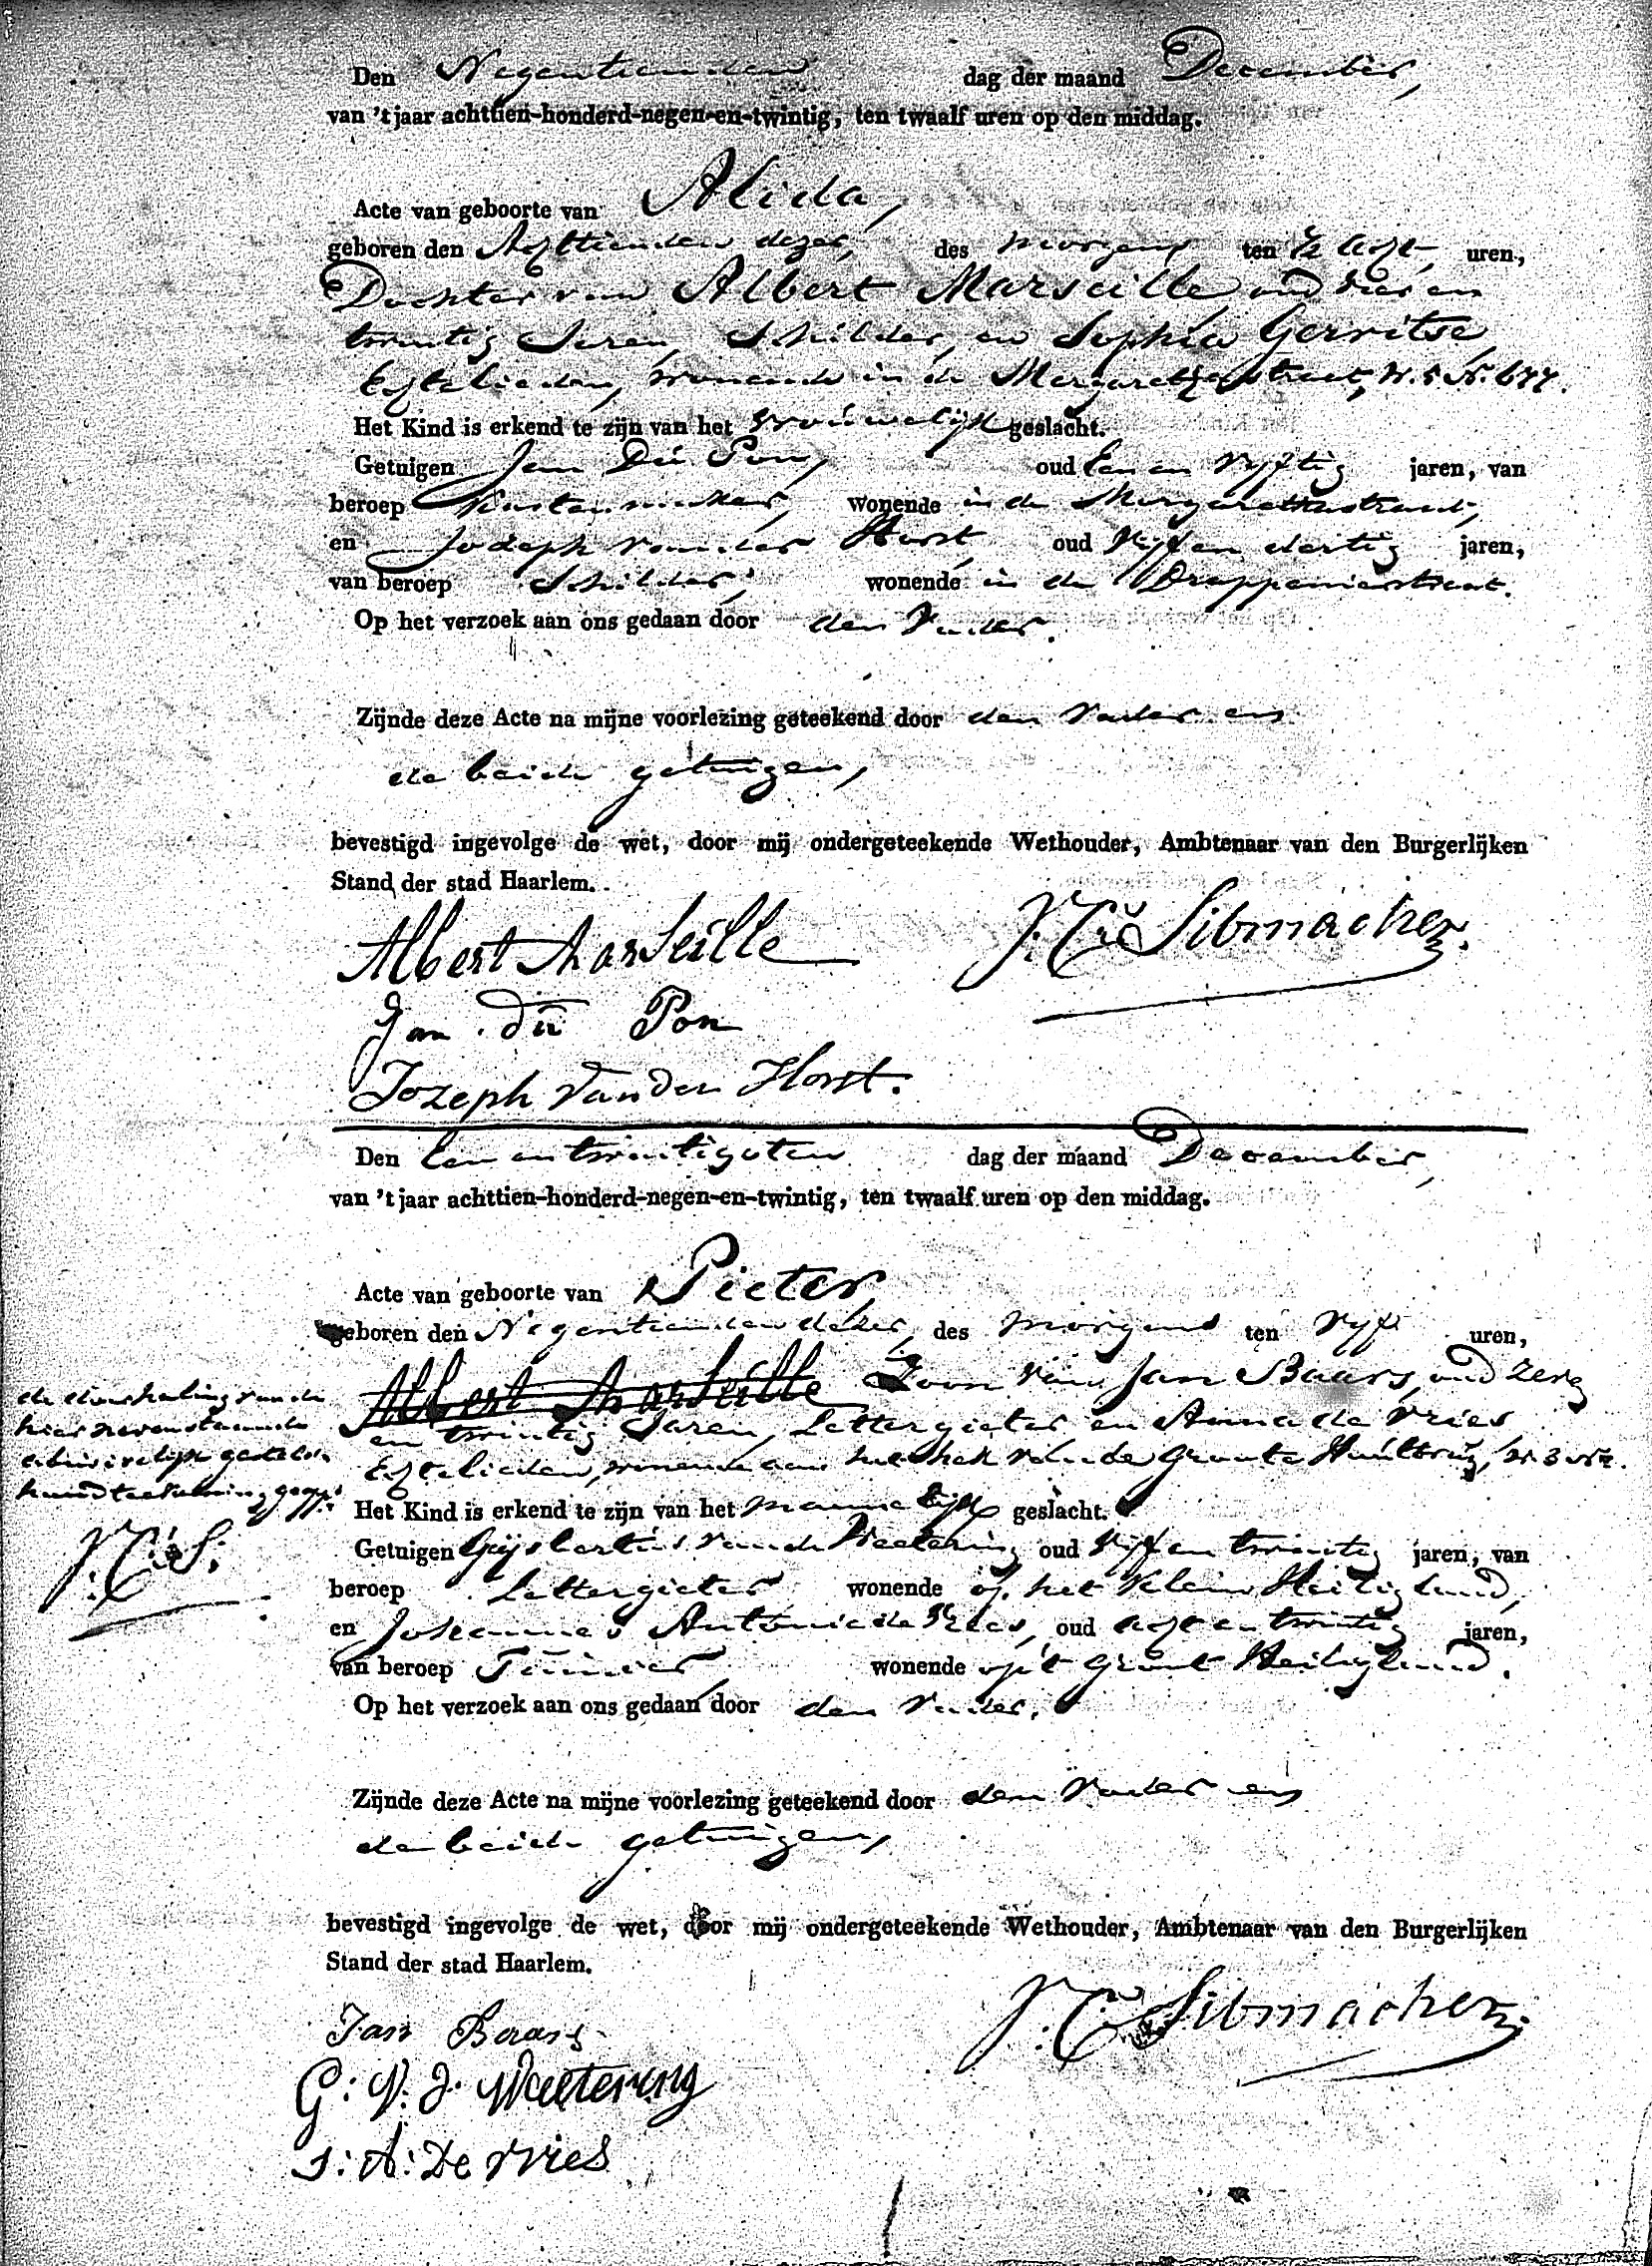 Den Negentienden dag der maand December,
van 't jaar achttien-honderd-negen-en-twintig, ten twaalf uren op den middag.
Acte van geboorte van Alida,
geboren den Achttienden dezer, des morgens ten ½ acht uren,
Dochter van Albert Marseille, oud vier en
twintig Jaren, Schilder, en Sophia Gerritse
Echtelieden, wonende in de Margarethastraat, W. 5 N. 677.
Het Kind is erkend te zijn van het vrouwelijk geslacht.
Getuigen Jan Dú Pon, oud Een en vyftig jaren, van
beroep Kastenmaker, wonende in de Margarethastraat,
en Joseph van der Horst, oud vyf en dertig jaren,
van beroep Schilder, wonende in de Drappenierstraat.
Op het verzoek aan ons gedaan door den Vader.
Zijnde deze Acte na mijne voorlezing geteekend door den Vader en
de beide getuigen,
bevestigd ingevolge de wet, door mij ondergeteekende Wethouder, Ambtenaar van den Burgerlijken
Stand der stad Haarlem.
Albert Marseille
Sibmacher
Jan Dú Pon
Jozeph Van der Horst.
Den Een en twintigsten dag der maand December,
van 't jaar achttien-honderd-negen-en-twintig, ten twaalf uren op den middag.
Acte van geboorte van Pieter,
geboren den Negentienden dezer, des morgens ten vyf uren,
Albert Marseille Zoon van Jan Baars, oud zeven
en twintig Jaren, Lettergieter, en Anna de Vries
Echtelieden, wonende aan het hek van de Groote Houtbrug, W. 3
de doorhaling van de
hier nevenstaande
abusivelijk gestelde
handteekening
Het Kind is erkend te zijn van het mannelijk geslacht.
Getuigen Gijsbertus van de Weetering oud vyf en twintig jaren, van
beroep Lettergieter, wonende op het Klein Heiligland,
en Johannes Antonie de Vries, oud acht en twintig jaren,
van beroep Tuinier, wonende op 't Groot Heiligland.
Op het verzoek aan ons gedaan door den Vader.
Zijnde deze Acte na mijne voorlezing geteekend door den Vader en
de beide getuigen,
bevestigd ingevolge de wet, door mij ondergeteekende Wethouder, Ambtenaar van den Burgerlijken
Stand der stad Haarlem.
Sibmacher
Jan Baars
G: V: D: Weetering
J: A: De Vries